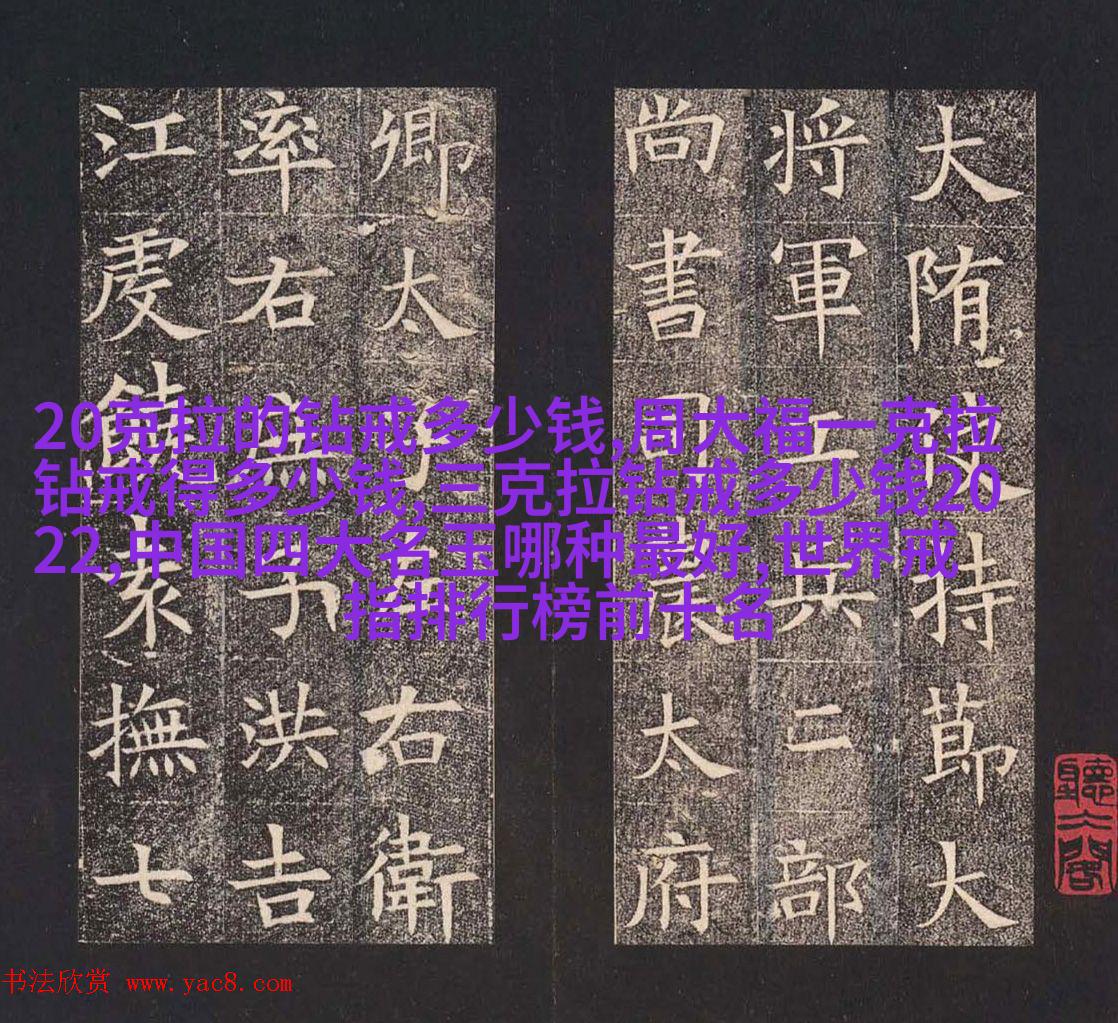 大隋使持節大
將軍工兵二部
尚書司農太府
卿太子左右衛
率右庶子洪吉
江虔饒袁撫七
20克拉的钻戒多少钱,周大福一克拉
钻戒得多少钱,三克拉钻戒多少钱20
22,中国四大名玉哪种最好,世界戒
指排行榜前十名
书法欣赏 www.yac8.com